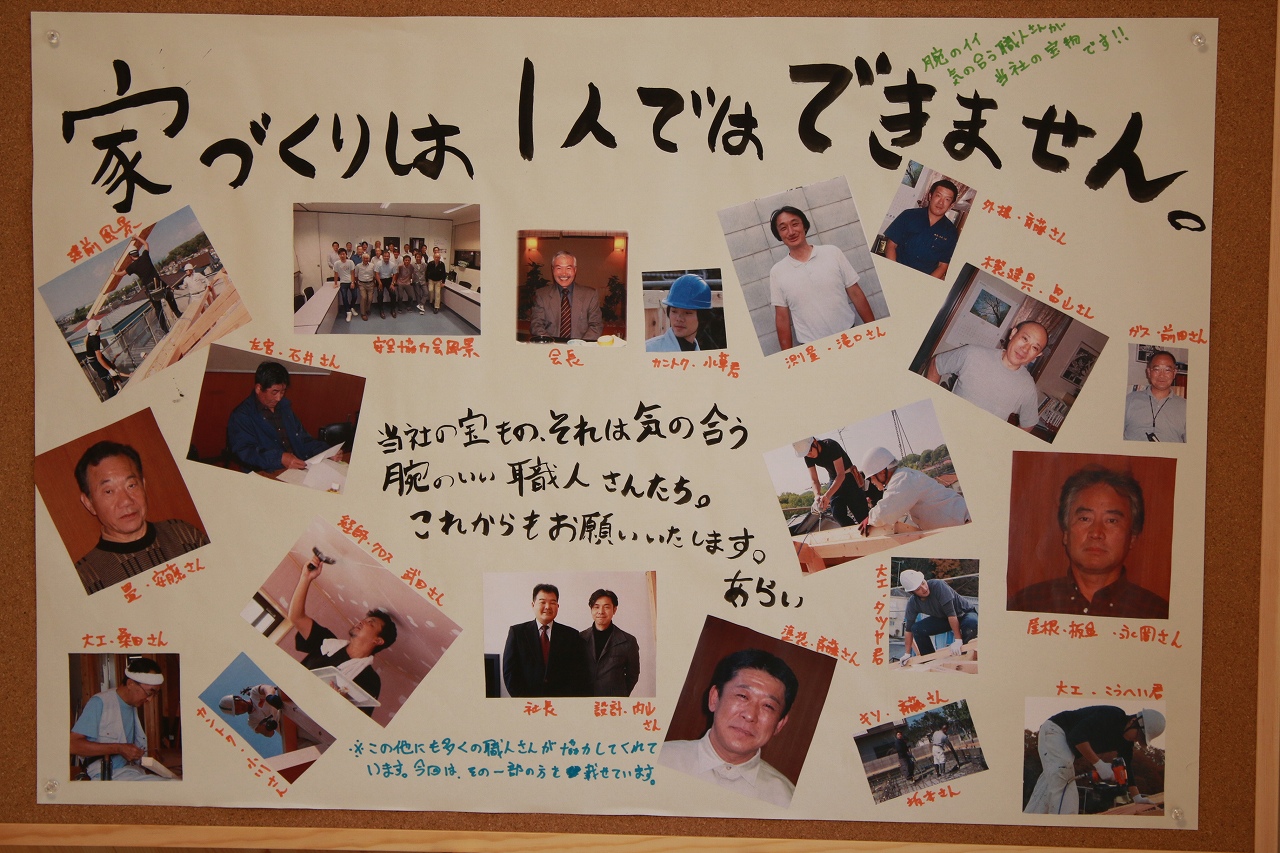 家づくりは 1人では できません。
腕のイイ
気の合う職人さんが、
当社の宝物
です!!
建前風景
安全協力会風景
会長
カントク・小草君
測量・滝口さん
外構・斉藤さん
木製建具・畠山さん
ガス・前田さん
左官・石井さん
当社の宝もの、それは気の合う
腕のいい職人さんたち。
これからもお願いいたします。
あらい
畳・安藤さん
経師・クロス 武田さん
大工・タツヤ君
屋根・板金・永岡さん
大工・桑田さん
カントク・小川さん
社長
設計・内山
さん
塗装・斉藤さん
キソ・斉藤さん
坂本さん
大工・こうへい君
※この他にも多くの職人さんが協力してくれて
います。今回は、その一部の方を載せています。